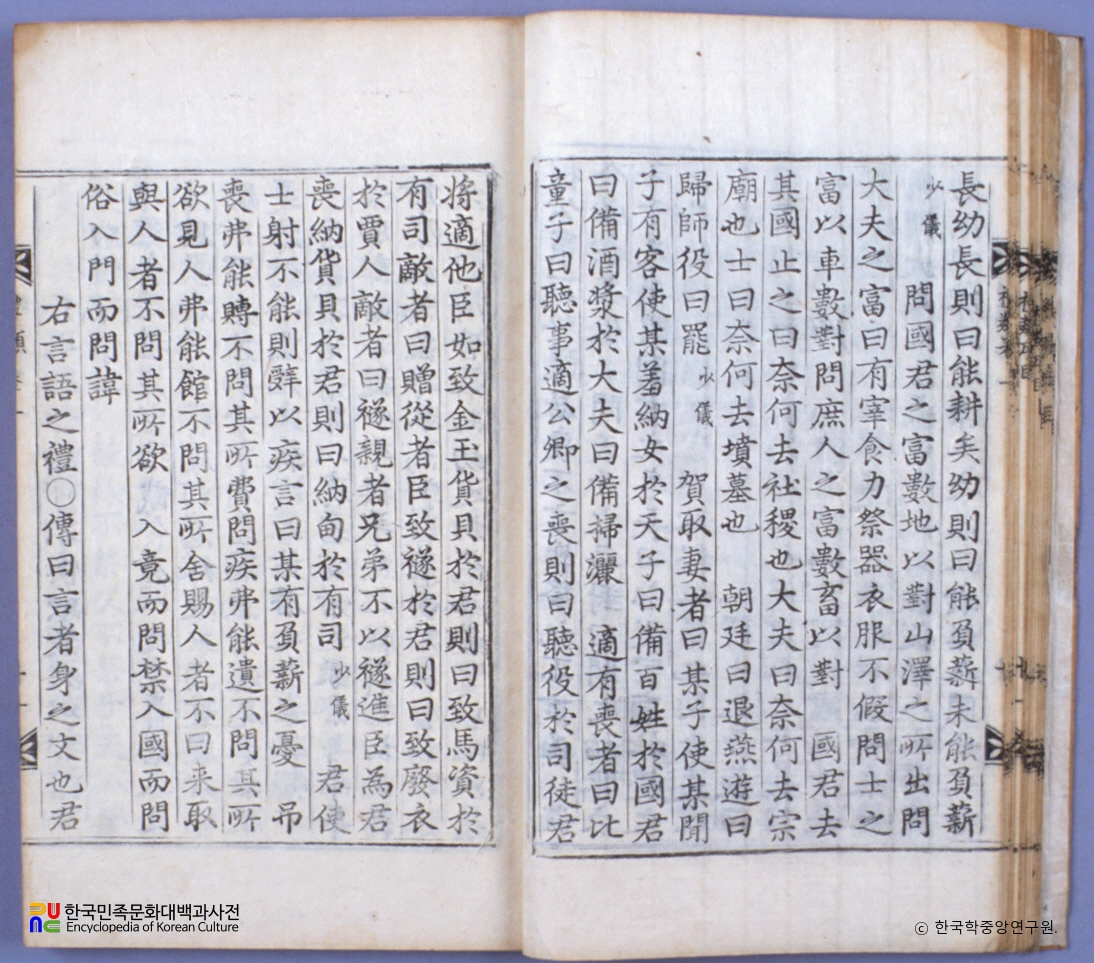 長幼長則曰能耕矣幼則曰能負薪未能負薪
少儀 問國君之富數地以對山澤之所出問
大夫之富曰有宰食力祭器衣服不假問士之
富以車數對問庶人之富數畜以對 國君去
其國止之曰奈何去社稷也大夫曰奈何去宗
廟也士曰奈何去墳墓也 朝廷曰退燕遊曰
歸師役曰罷 少儀 賀取妻者曰某子使某聞
子有客使某羞納女於天子曰備百姓於國君
曰備酒漿於大夫曰備掃灑 適有喪者曰比
童子曰聽事適公卿之喪則曰聽役於司徒君
將適他臣如致金玉貨貝於君則曰致馬資於
有司敵者曰贈從者臣致襚於君則曰致廢衣
於賈人敵者曰襚親者兄弟不以襚進臣為君
喪納貨貝於君則曰納甸於有司 少儀 君使
士射不能則辭以疾言曰某有負薪之憂 吊
喪弗能賻不問其所費問疾弗能遺不問其所
欲見人弗能館不問其所舍賜人者不曰来取
與人者不問其所欲 入竟而問禁入國而問
俗入門而問諱
右言語之禮〇傳曰言者身之文也君
한국민족문화대백과사전
Encyclopedia of Korean Culture
© 한국학중앙연구원.